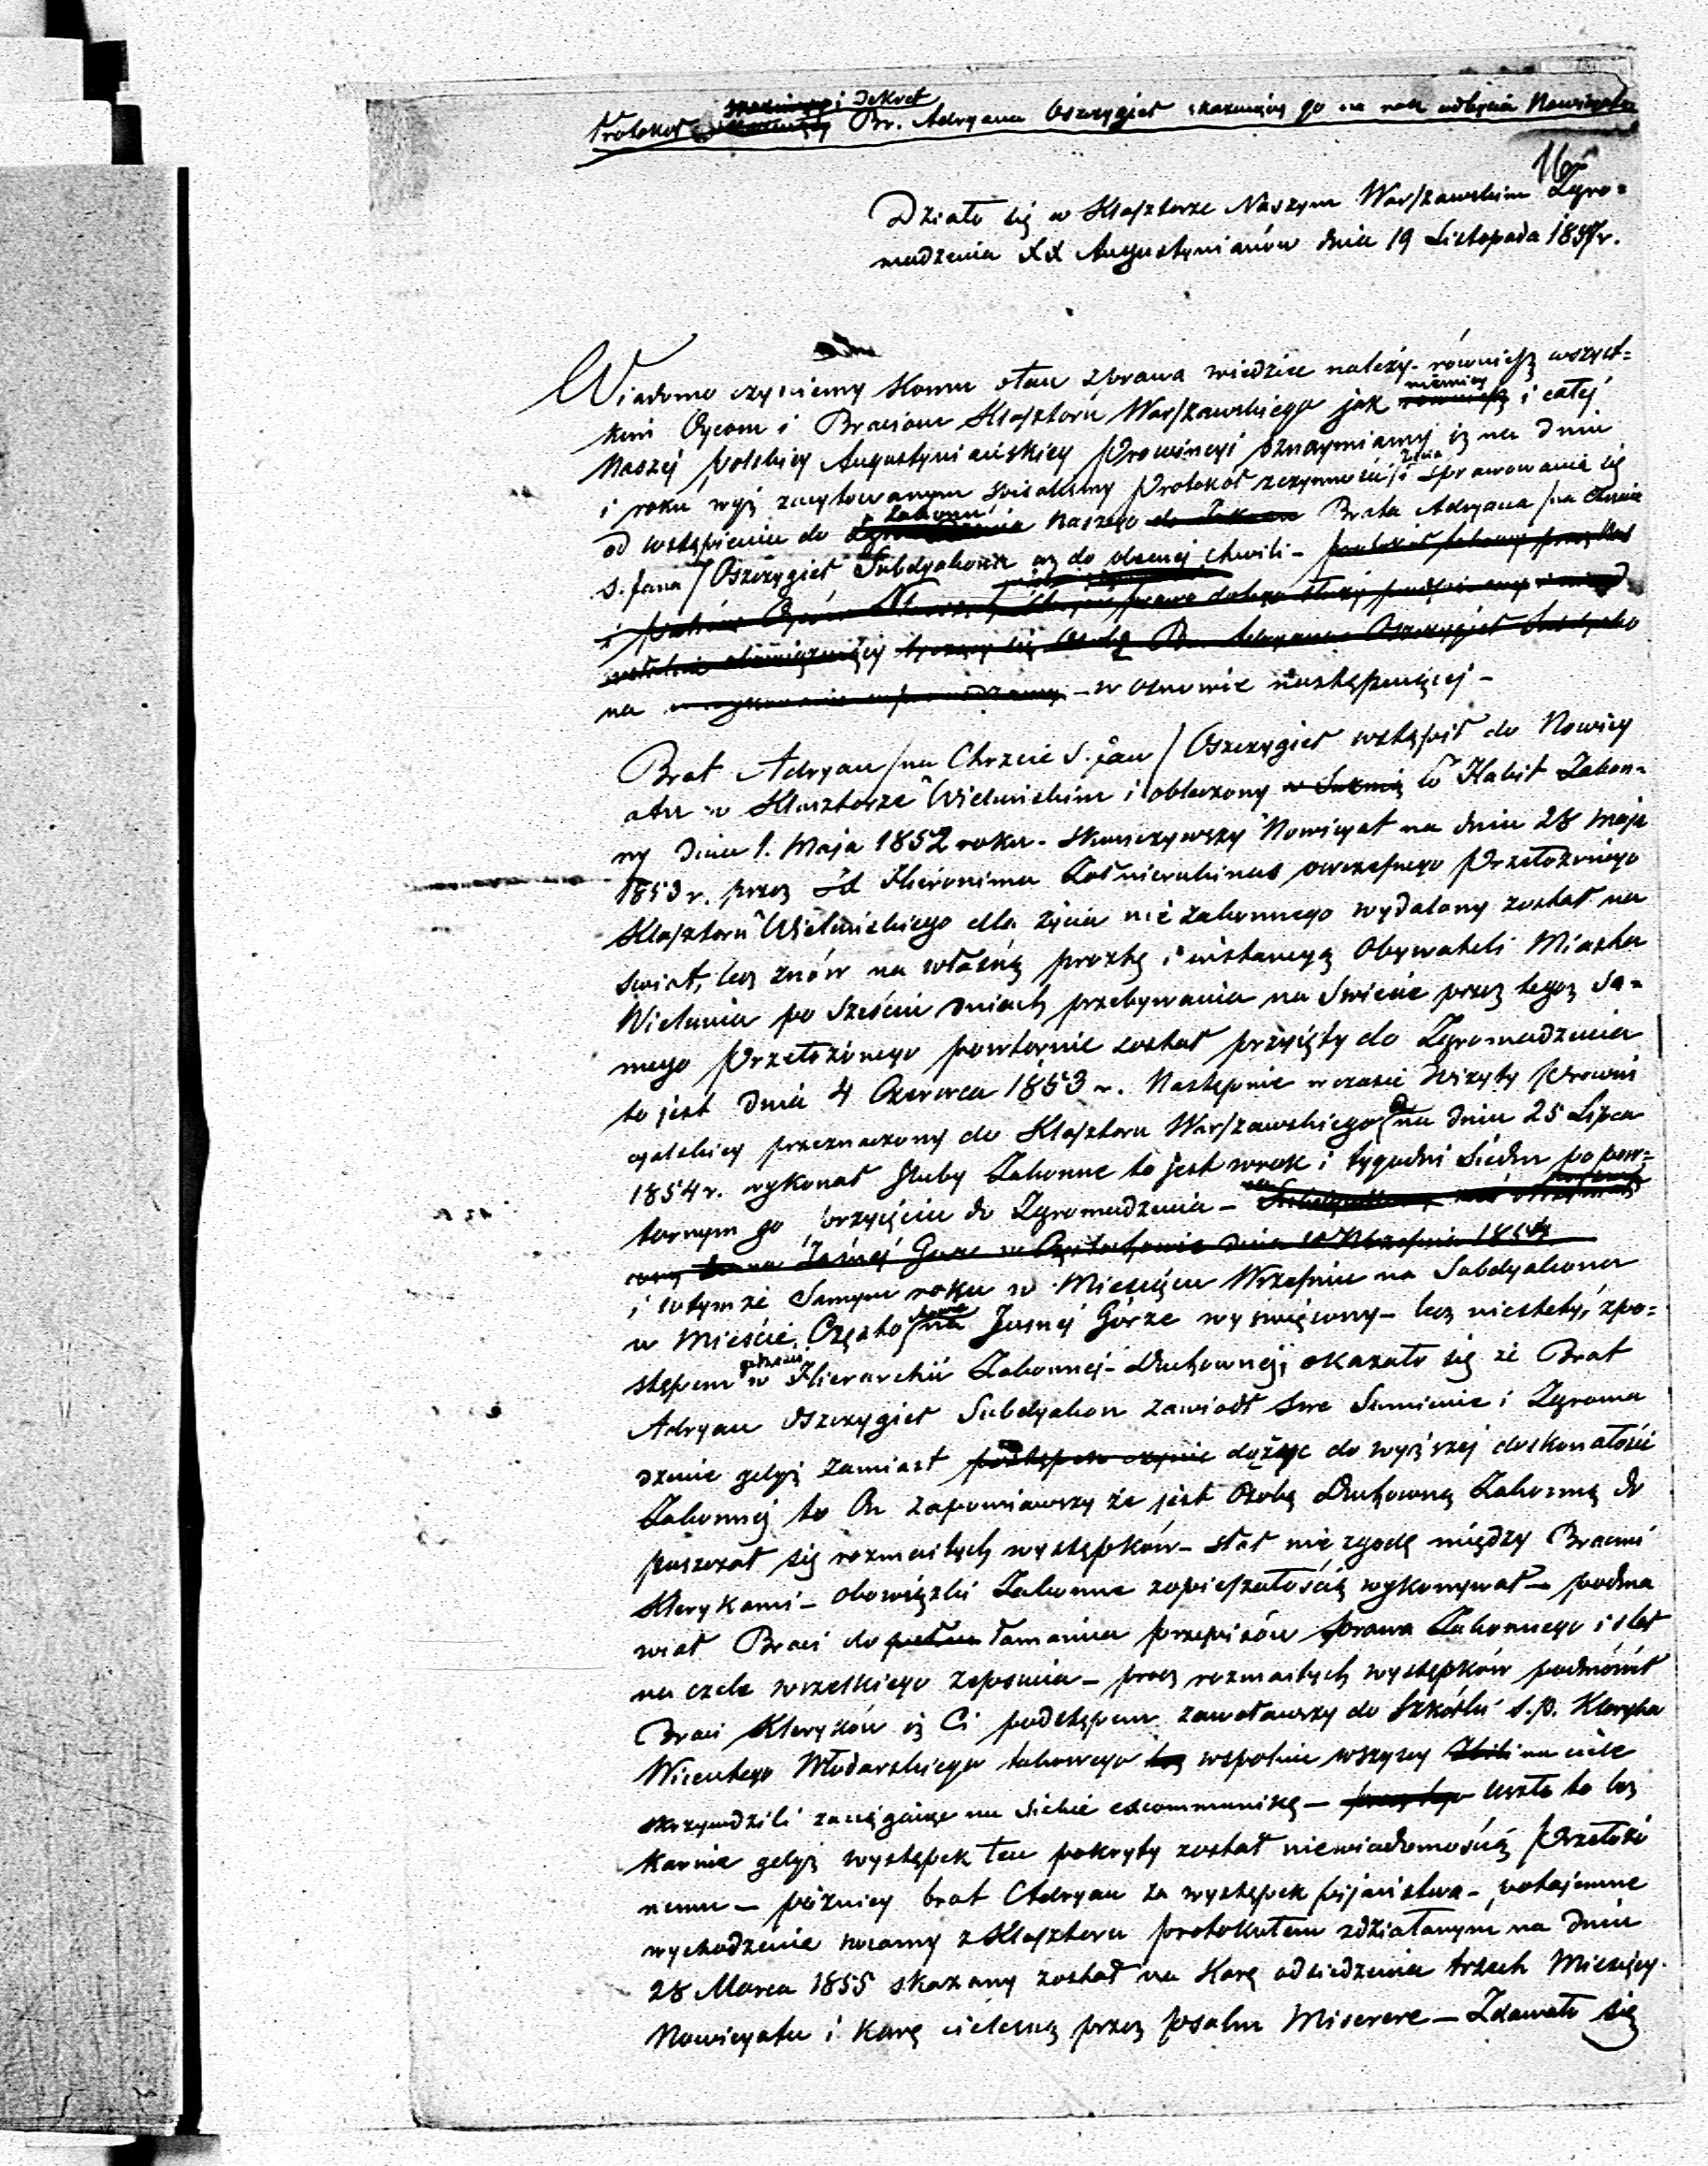 Protokół i Dekret Br. Adryana Oszczygieł skazujący go na rok odbycia Nowicyatu
16
Działo się w Klasztorze Naszym Warszawskim Zgro=
madzenia XX Augustynianów dnia 19 Listopada 1857 r.
Wiadomo czyniemy komu o tem zprawa wiedzieć należy. również wszyst=
kim Oycom i Braciom Klasztoru Warszawskiego jak niemniey i całej
Naszéj polskiey Augustyniańskiey Prowincyi oznaymiamy iż na dniu
i roku wyż zacytowanym spisaliśmy Protokół z czynności życia i sprawowania się
od wstąpienia do Zakonu Naszego Brata Adryana /na Chrzcie
S. Jana/ Oszczygieł Subdyakona aż do obecnej chwili –
na – w osnowie następującéj –
Brat Adryan /na Chrzcie S. Jan/ Oszczygieł wstąpił do Nowicy
atu w Klasztorze Wieluńskim i obleczony w Habit Zakon=
ny dnia 1. Maja 1852 roku. Skończywszy Nowicyat na dniu 28 Maja
1853 r. przez Hieronima owczesnego Przełożonego
Klasztoru Wieluńskiego dla życia nie zakonnego wydalony został na
świat, lecz znów na własną prozbę i instancyą Obywateli Miasta
Wielunia po sześciu dniach przebywania na świecie przez tegoż sa=
mego Przełożonego powtórnie został przyięty do Zgromadzenia
to jest dnia 4 Czerwca 1853 r. Następnie w czasie Wizyty Prowin
cyalskiey przeznaczony do Klasztoru Warszawskiego na dniu 25 Lipca
1854 r. wykonał śluby Zakonne to jest w rok i tygodni siedm po pow=
tornym go przyięciu do Zgromadzenia –
na Jasnéj Górze w Częstochowie dnia 10 Września 1854
i w tymże Samym roku w Miesiącu Wrześniu na Subdyakona
w Mieście Częstochowie na Jasnéj Górze wyswięcony – lecz niestety, z po=
stępem godności w Hierarchii Zakonnéj – Duchownéj, okazało się że Brat
Adryan Oszczygieł Subdyakon zawiodł swe Sumienie i Zgroma
dzenie gdyż zamiast dążyć do wyższéj doskonałości
Zakonnéj to On zapomniawszy że jest Osobą Duchowną Zakonną do
puszczał się rozmaitych występków – siał nie zgodę między Bracmi
Klerykami – obowiązki Zakonne z opieszałością wykonywał – podma
wiał Braci do łamania przepisów prawa Zakonnego i stał
na czele wszelkiego zepsucia – prócz rozmaitych występków podmówił
Braci Kleryków iż Ci podstępem zawoławszy do Szkółki s. p. Kleryka
Wincentego Włodarskiego takowego wspolnie wszyscy na ciele
skrzywdzili zaciągaiąc na siebie excommunikę – uszło to bez
karnie gdyż występek ten pokryty został niewiadomością Przełożo
nemu – późniey brat Adryan za występek pijaństwa – potajemne
wychodzenie nocami z Klasztoru protokułem zdziałanym na dniu
28 Marca 1855 skazany został na Karę odsiedzenia trzech Miesięcy
Nowicyatu i karę cielesną przez psalm Miserere – Zdawało się